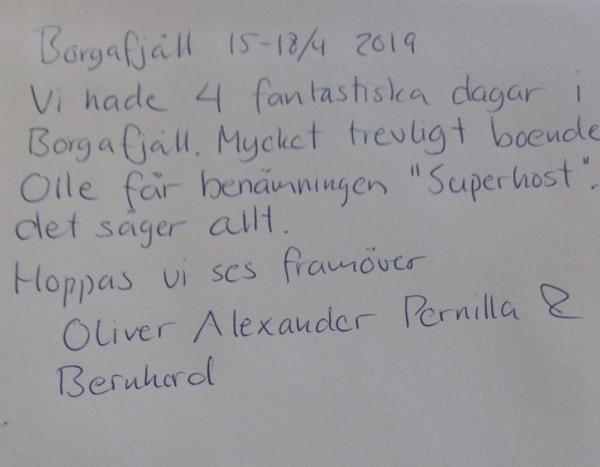 Borgafjäll 15-18/4 2019
Vi hade 4 fantastiska dagar i
Borgafjäll. Mycket trevligt boende
Olle får benämningen "Superhost".
det säger allt.
Hoppas vi ses framöver
Oliver Alexander Pernilla &
Bernhard